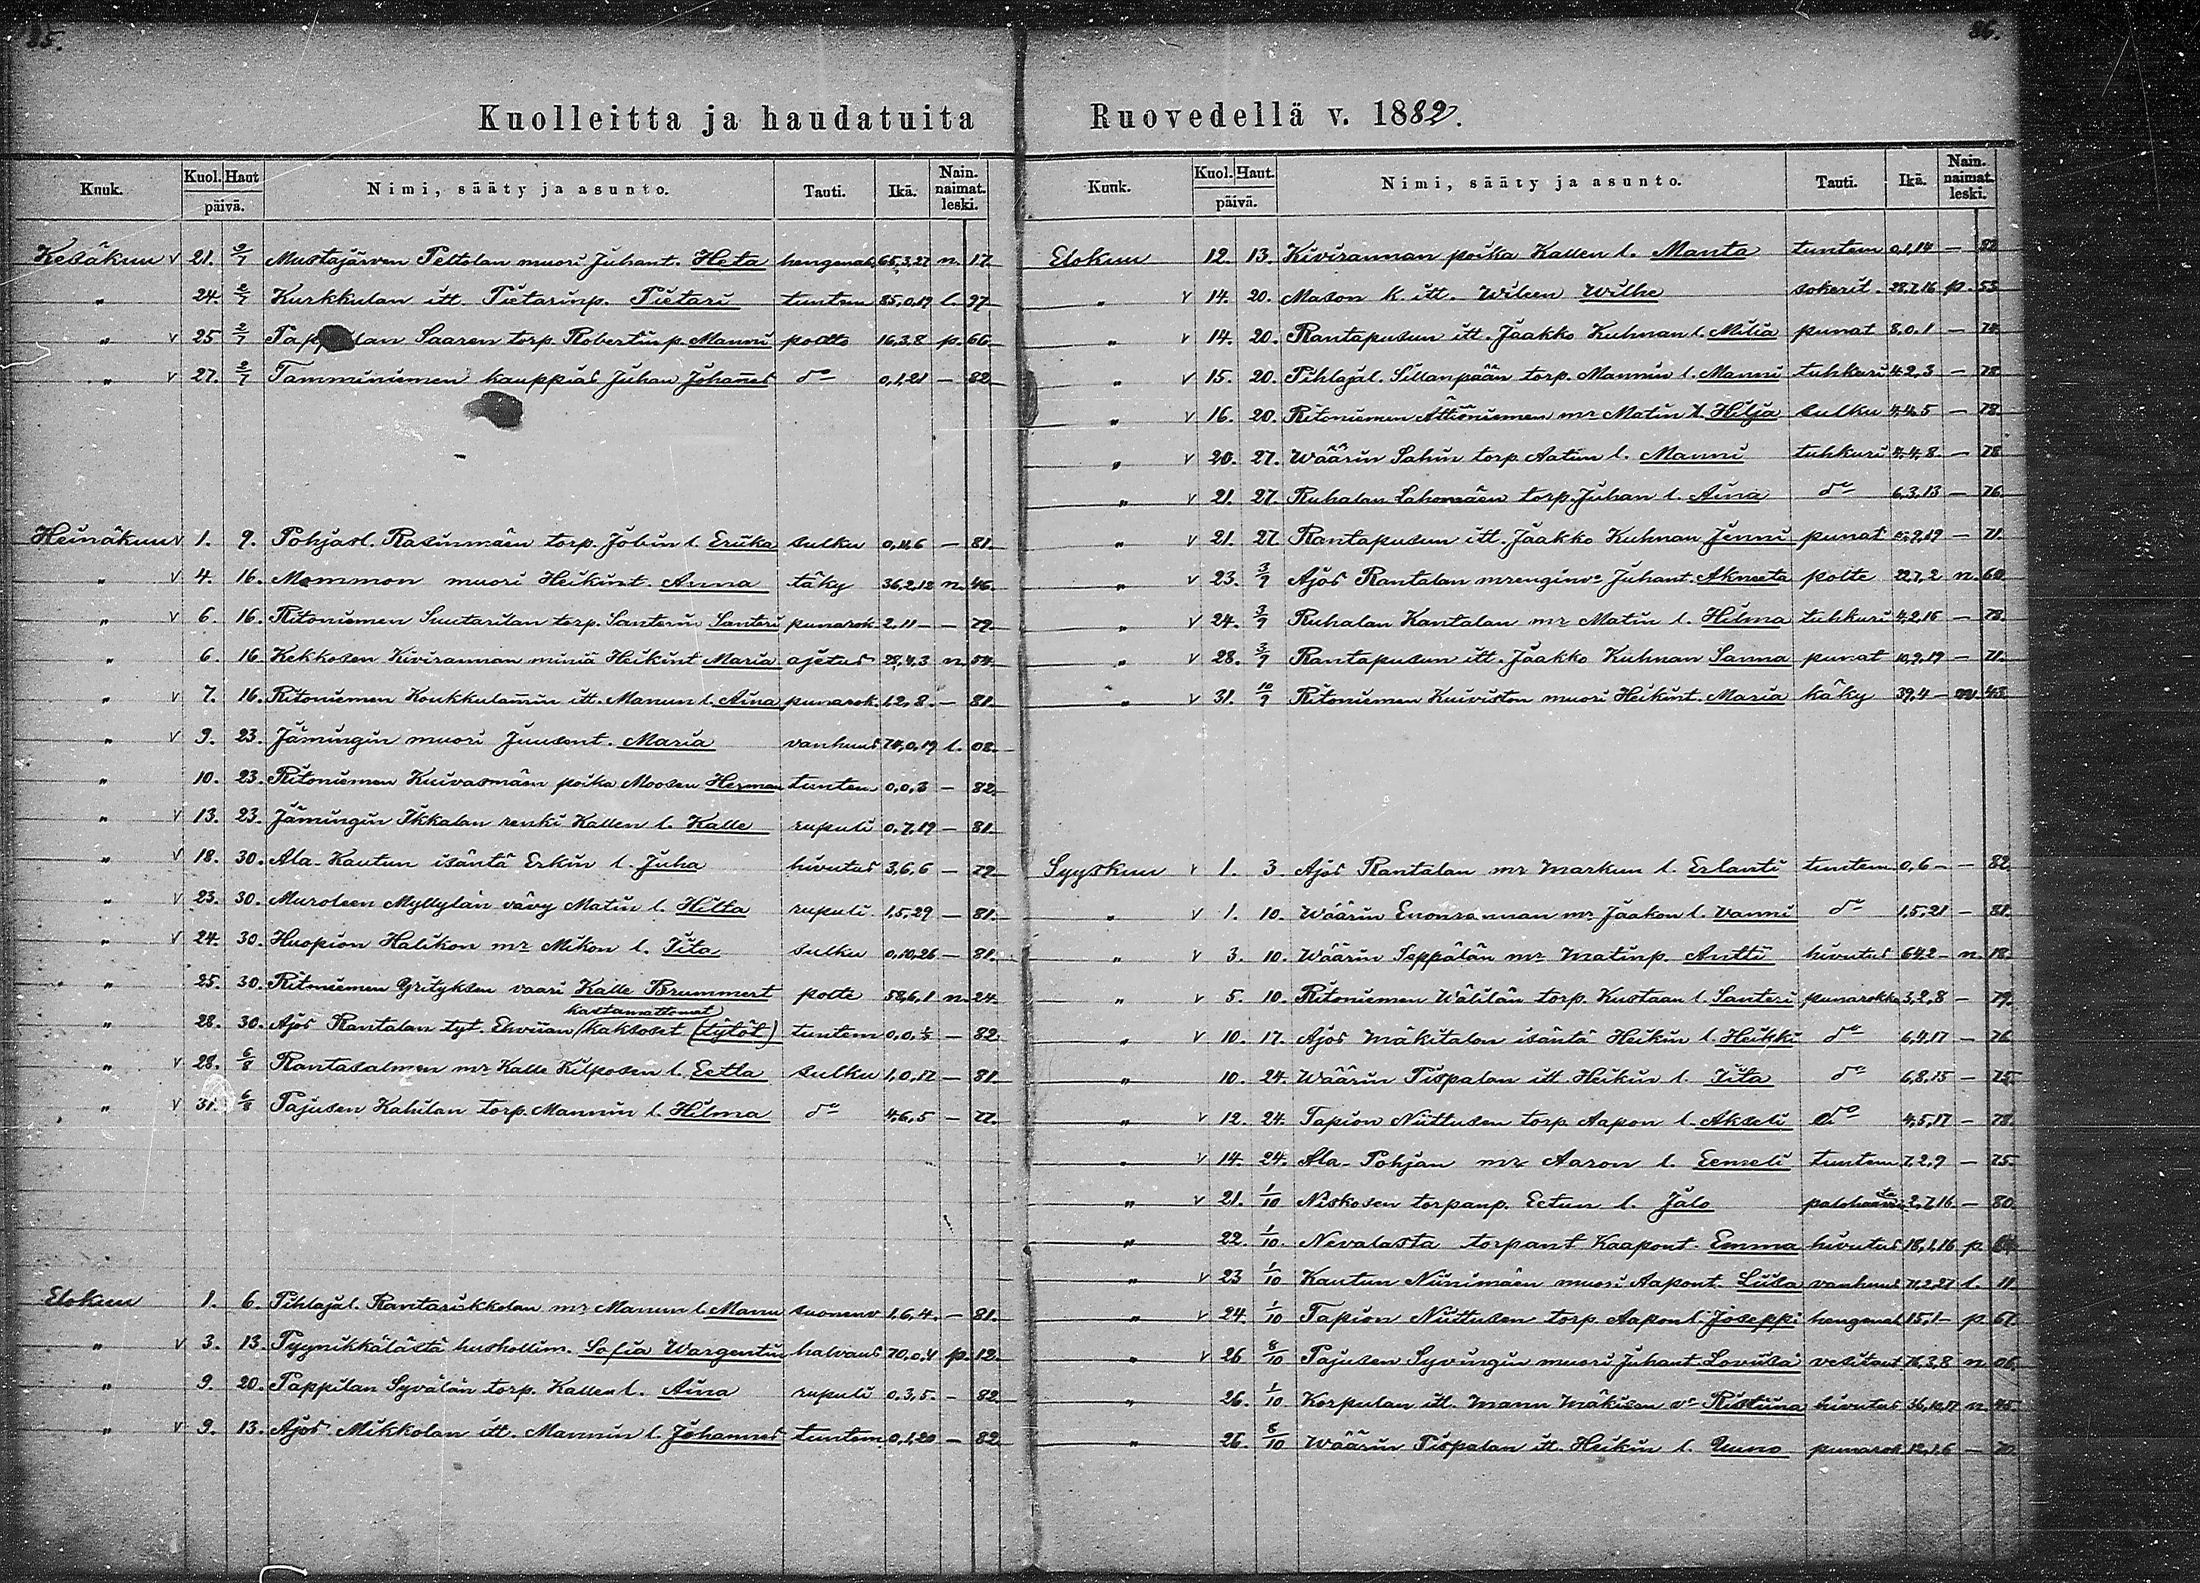 85.
Kuolleitta ja haudatuita
Kuuk. Kuol. Haut. päivä. Nimi, sääty ja asunto. Tauti. Ikä. Nain. naimat. leski.
Kesäkuu v 21. 2/7 Mustajärven Peltolan muori Juhant. Heta hengenah. 65,3,27 n. 17.
" 24. 2/7 Kurkkulan itt. Pietarinp. Pietari tuntem 85,0,19 l. 97
" v 25 2/7 Saaren torp. Robertin p. Manni poltto 16,3,8 p. 66.
" v 27. 2/7 Tamminiemen kauppias Juhan Johañes do 0,1,21 — 82.
Heinäkuu v 1. 9. Pohjasl. Rasinmäen torp. Jobin l. Eriika sulku 0,11,6 — 81.
" v 4. 16. Mommon muori Heikint. Anna täky 36,2,12 n. 46.
" v 6. 16. Ritoniemen Suutarilan torp. Santerin Santeri punarok. 2,11 — — 79.
" 6. 16. Kekkosen Kivirannan miniä Heikint Maria ajetus 28,4,3 n. 54.
" v 7. 16. Ritoniemen Koukkulamin itt. Manun l. Aina punarok. 1,2,8. — 81.
" v 9. 23. Jämingin muori Juusent. Maria vanhuus 74,0,19 l. 08.
" 10. 23. Ritoniemen Kuivasmäen poika Moosen Herman tuntem 0,0,3 — 82.
" v 13. 23. Jämingin Ikkalan renki Kallen l. Kalle rupuli 0,7,19 — 81.
" v 18. 30. Ala-Kautun isäntä Erkin l. Juha hivutus 3,6,6 — 79.
" v 23. 30. Muroleen Myllylän vävy Matin l. Hilta rupuli. 1,5,29 — 81.
" v 24. 30. Huopion Halikon mr Mikon l. Iita sulku 0,10,26 — 81.
" 25. 30. Ritoniemen Yrityksen vaari Kalle Brummert polte 58,6,1 n. 24.
kastamattomat
" 28. 30. Ajos Rantalan tyt. Ehviian kaksoset (tytöt) tuntem 0,0,½ — 82.
" v 28. 6/8 Rantasalmen mr Kalle Kilposen l. Eetla sulku 1,0,17 — 81.
" v 31. 6/8 Pajusen Kahilan torp. Mannin l. Hilma do 4,6,5 — 77.
Elokuu 1. 6. Pihlajal. Rantariikkolan mr Manun l. Manu suonenv 1,6,4. — 81.
" v 3. 13. Pyynikkälästä hushollim. Sofia Wargentin halvaus 70,0,4 p. 12.
" 9. 20. Pappilan Syvälän torp. Kallen l. Aina rupuli 0,3,5. — 82.
" v 9. 13. Ajos Mikkolan itt. Mannin l. Johannes tuntem 0,1,20 — 82.
86.
Ruovedellä v. 1882.
Kuuk. Kuol. Haut. päivä. Nimi, sääty ja asunto. Tauti. Ikä. Nain. naimat. leski.
Elokuu 12. 13. Kivirannan poika Kallen l. Manta tuntem 0,1,14 — 82
" v 14. 20. Mason k. itt. Wileen Wilhe sokerit. 28,7,16 p. 53
" v 14. 20. Rantapusun itt. Jaakko Kuhnan l. Miliä punat 8,0,1 — 74.
" v 15. 20. Pihlajal. Sillanpään torp. Mannin l. Manni tuhkuri 4,2,3 — 78
" v 16. 20. Ritoniemen Attiöniemen mr Matin l. Hilja sulku 4,4,5 — 78.
" v 20. 27. Wäärin Sahin torp Aatun l. Manni tuhkuri 4,4,8. — 78
" v 21. 27. Ruhalan Lahomäen torp. Juhan l. Aina do 6,3,13 — 76.
" v 21. 27. Rantapusun itt. Jaakko Kuhnan Jenni punat — 71.
" v 23. 3/9 Ajos Rantalan mrengin vo Juhant. Akneeta polte 22,7,2 n. 60
" v 24. 3/9 Ruhalan Kantalan mr Matin l. Hilma tuhkuri 4,2,16 — 78.
" v 28. 3/9 Rantapusun itt. Jaakko Kuhnan Sanna punat 10,9,19 — 71.
" v 31. 10/9 Ritoniemen Kuiviston muori Heikint. Maria käky 39,4 — n. 43.
Syyskuu v 1. 3 Ajos Rantalan mr Markun l. Erlanti tuntem 0,6 — — 82
" v 1. 10. Wäärin Enonrannan mr Jaakon l. Vanni do 1,5,21 — 81.
" v 3. 10. Wäärin Seppälän mr Matinp. Antti hivutus 64,2 — n. 18.
" v 5. 10. Ritoniemen Wälilän torp. Kustaan l. Santeri punarokko 3,2,8 — 79.
" v 10. 17. Ajos Mäkitalon isäntä Heikin l. Heikki do 6,4,17 — 76.
" 10. 24. Wäärin Pispalan itt. Heikin l. Iita do 6,8,15 — 75.
" v 12. 24. Tapion Niittusen torp. Aapon l. Akseli do 4,5,17 — 78.
" v 14. 24. Ala-Pohjan mr. Aaron l. Eemeli tuntem 7,2,9 — 75.
" v 21. 1/10 Niskosen torpanp. Eetun l. Jalo 2,7,16 — 80.
" 22. 1/10. Nevalasta torpant Kaapont. Emma hivutus 18,1,16 p. 64.
" v 23 1/10 Kautun Niinimäen muori Aapont. Liisa vanhuus 71,2,27 l. 11
" v 24. 1/10 Tapion Niittusen torp. Aapon l. Joseppi hengenah 15,1 — p. 67.
" v 26 8/10 Pajusen Syvingin muori Juhant. Loviisa vesitaut 76,3,8 n. 06.
" 26. 1/10 Korpulan itt. Manu Mäkisen vo Ristiina hivutus 36,10,17 n. 45.
" 26. 8/10 Wäärin Pispalan itt. Heikin l. Uuno punarok 12,1,6 — 70.